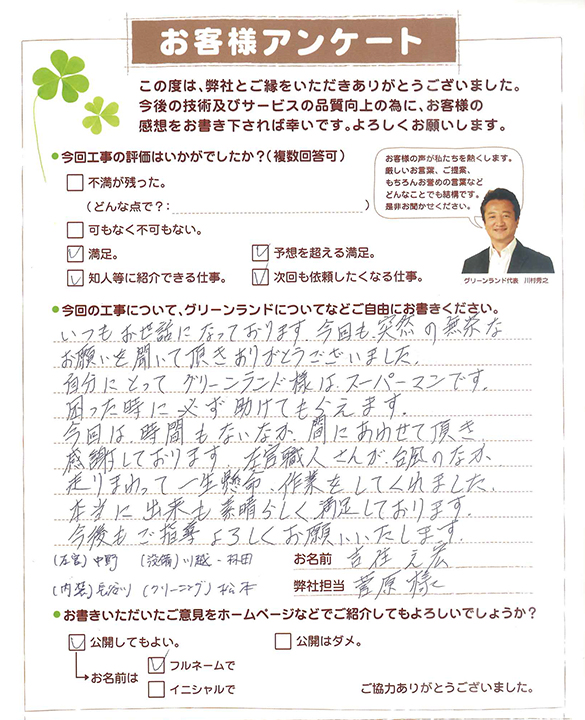 お客様アンケート
この度は、弊社とご縁をいただきありがとうございました。
今後の技術及びサービスの品質向上の為に、お客様の
感想をお書き下されば幸いです。よろしくお願いします。
●今回工事の評価はいかがでしたか?(複数回答可)
不満が残った。
(どんな点で?: )
可もなく不可もない。
満足。
予想を超える満足。
知人等に紹介できる仕事。
次回も依頼したくなる仕事。
お客様の声が私たちを熱くします。
厳しいお言葉、ご提案、
もちろんお誉めの言葉など
どんなことでも結構です。
是非お聞かせください。
グリーンランド代表 川村秀之
●今回の工事について、グリーンランドについてなどご自由にお書きください。
いつもお世話になっております。今回も、突然の無茶な
お願いを聞いて頂きありがとうございました。
自分にとってグリーンランド様は、スーパーマンです。
困った時に必ず助けてもらえます。
今回は、時間もないなか、間にあわせて頂き
感謝しております。左官職人さんが、台風のなか、
走りまわって一生懸命、作業をしてくれました。
本当に出来も素晴らしく満足しております。
今後もご指導よろしくお願いいたします。
(左官)中野 (設備)川越・林田
お名前 吉住 元宏
(内装)長谷川 (クリーニング)松本
弊社担当 菅原 様
●お書きいただいたご意見をホームページなどでご紹介してもよろしいでしょうか?
公開してもよい。
公開はダメ。
お名前は
フルネームで
イニシャルで
ご協力ありがとうございました。